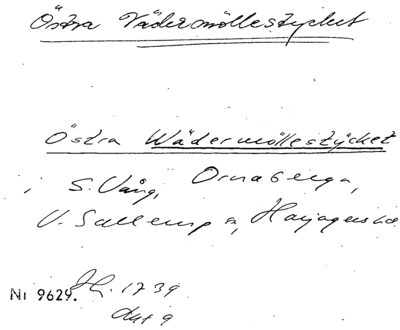 Östra Vädermöllestycket
Östra Wädermöllestycket
i S. Vång, Ormaberga,
V. Sallerup s, Harjagers hd
Nr 9629. 1739
Akt 9